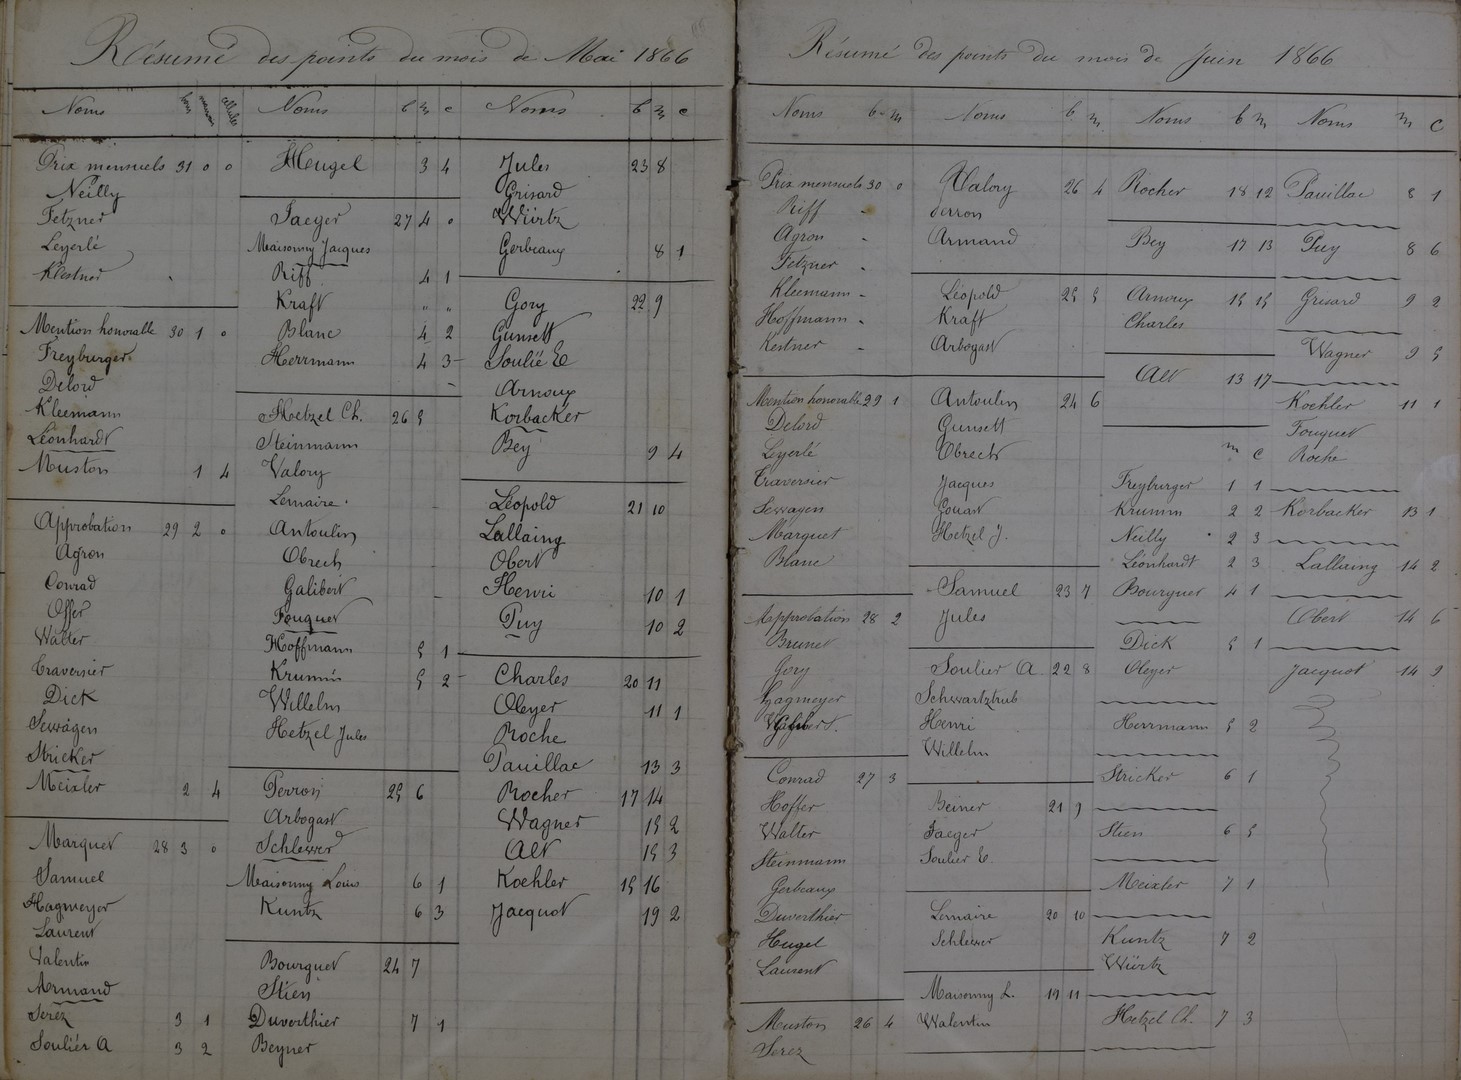 Résumé des points du mois de Mai 1866
Noms bons mauvais cellules
Prix mensuels 31 0 0
Neilly
Fetzner
Leyerlé
Klestner
Mention honorable 30 1 0
Freyburger
Delord
Kleemann
Léonhardt
Muston 1 4
Approbation 29 2 0
Agron
Conrad
Offer
Walter
Traversier
Dick
Serragen
Stricker
Meixler 2 4
Marquet 28 3 0
Samuel
Hagmeyer
Laurent
Valentin
Armand
Serez 3 1
Soulier A 3 2
Noms b m c
Heugel 3 4
Jaeger 27 4 0
Maisonny Jacques
Riff 4 1
Kraft " "
Blanc 4 2
Herrmann 4 3
Hetzel Ch. 26 5
Steinmann
Valory
Lemaire
Antoulin
Obrech
Galibert
Fouquet
Hoffmann 5 1
Krumm 5 2
Willelm
Hetzel Jules
Perron 25 6
Arbogast
Schlewer
Maisonny Louis 6 1
Kuntz 6 3
Bourguet 24 7
Stien
Duverthier 7 1
Beyner
Noms b m c
Jules 23 8
Grisard
Würtz
Gerbeaux 8 1
Gory 22 9
Gunsett
Soulié E
Arnoux
Korbacker
Bey 9 4
Léopold 21 10
Lallaing
Obert
Henri 10 1
Puy 10 2
Charles 20 11
Oleyer 11 1
Roche
Pauillac 13 3
Rocher 17 14
Wagner 15 2
Alt 15 3
Koehler 15 16
Jacquot 19 2
Résumé des points du mois de Juin 1866
Noms b m
Prix mensuels 30 0
Riff
Agron
Fetzner
Kleemann
Hoffmann
Kestner
Mention honorable 29 1
Delord
Leyerlé
Traversier
Serragen
Marquet
Blanc
Approbation 28 2
Brunet
Gory
Hagmeyer
Conrad 27 3
Hoffer
Walter
Steinmann
Gerbeaux
Duverthier
Hugel
Laurent
Muston 26 4
Serez
Noms b m
Valory 26 4
Perron
Armand
Léopold 25 5
Kraft
Arbogast
Antoulin 24 6
Gunsett
Obrech
Jacques
Gouast
Hetzel J.
Samuel 23 7
Jules
Soulier A. 22 8
Schwartztrub
Henri
Willelm
Beiner 21 9
Jaeger
Soulier E.
Lemaire 20 10
Schlewer
Maisonny L. 19 11
Walentin
Noms b m
Rocher 18 12
Bey 17 13
Arnoux 15 15
Charles
Alt 13 17
m c
Freyburger 1 1
Krumm 2 2
Neilly 2 3
Léonhardt 2 3
Bourguet 4 1
Dick 5 1
Oleyer
Herrmann 5 2
Stricker 6 1
Stien 6 5
Meixler 7 1
Kuntz 7 2
Würtz
Hetzel Ch. 7 3
Noms m c
Pauillac 8 1
Puy 8 6
Grisard 9 2
Wagner 9 5
Koehler 11 1
Fouquet
Roche
Korbacker 13 1
Lallaing 14 2
Obert 14 6
Jacquot 14 9